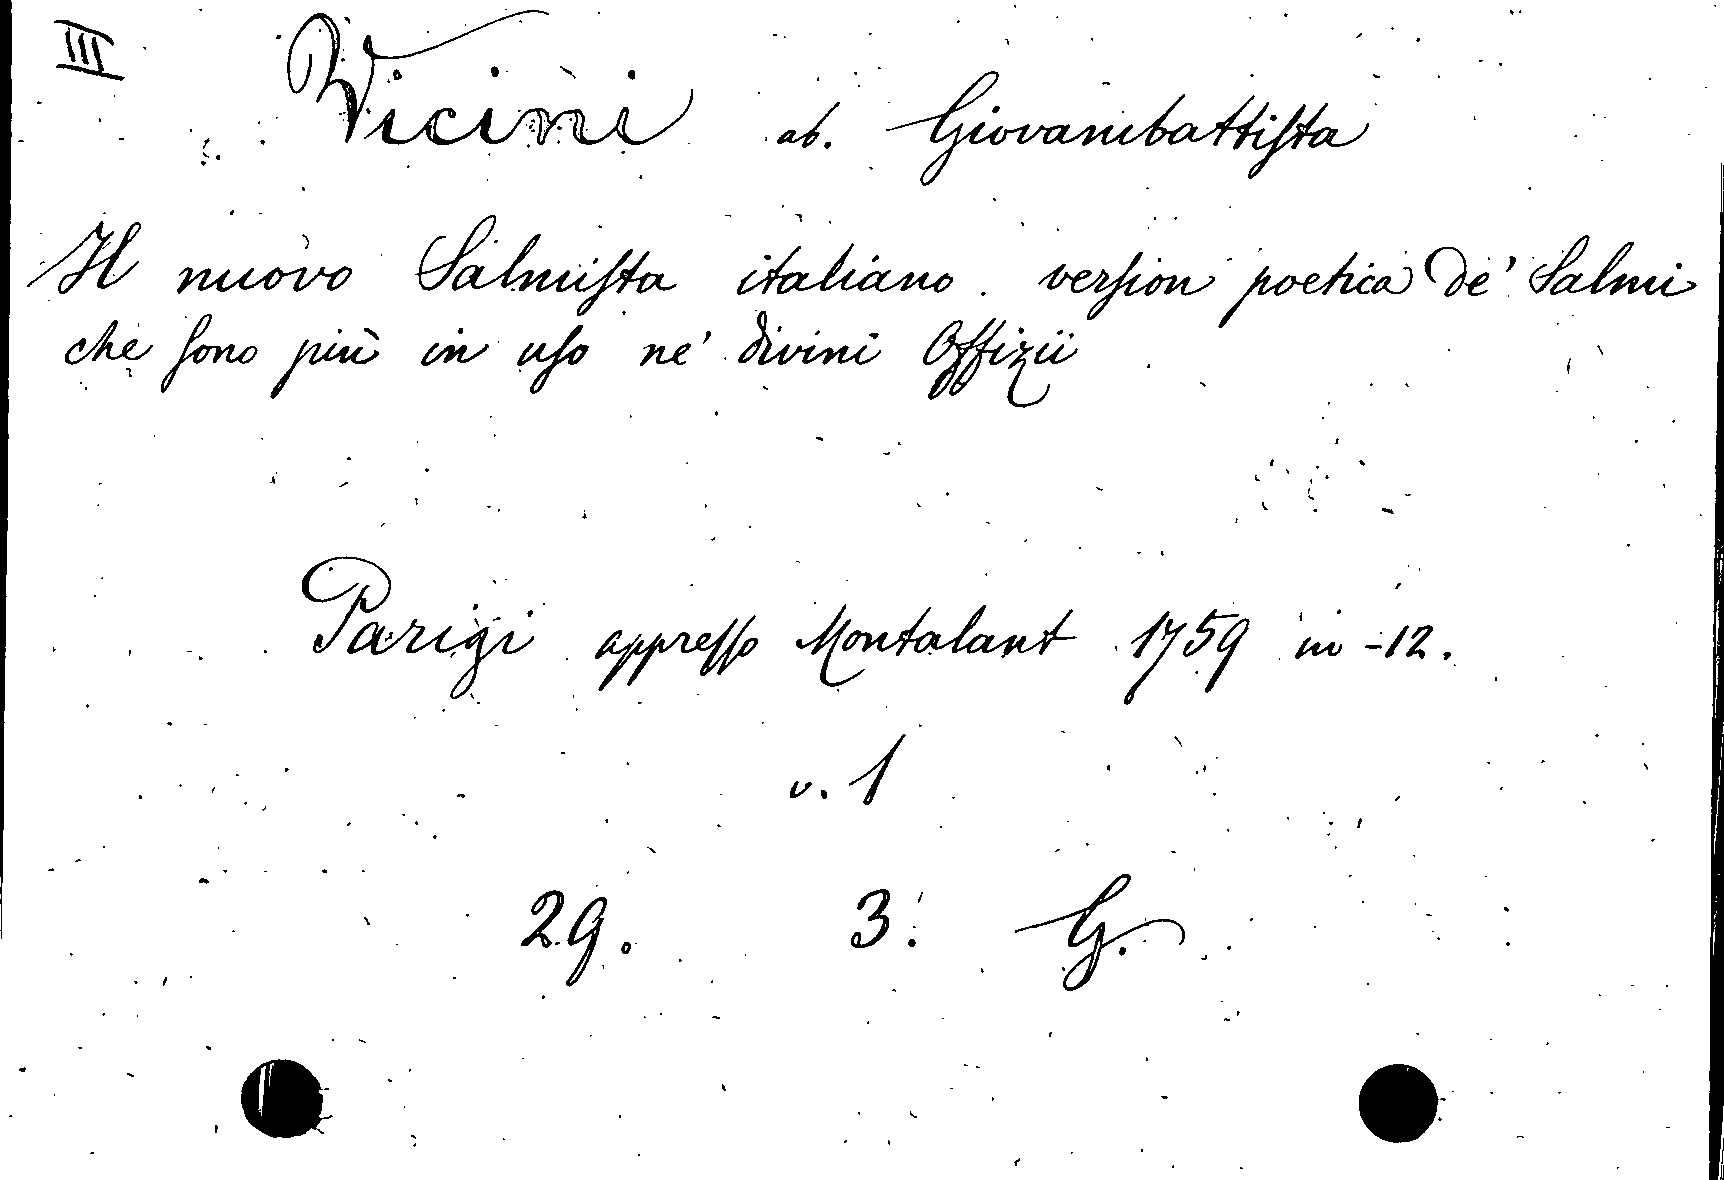 III
Vicini ab. Giovambattiſta
Il nuovo Salmiſta italiano. verſion poetica de' Salmi
che ſono più in uſo ne' divini Offizii
Parigi appreſſo Montalant 1759 in-12.
v. 1
29. 3. G.